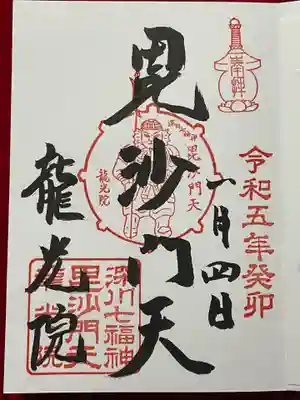 奉拝
令和五年癸卯
一月四日
毘沙門天
毘沙門天
龍光院
龍光院
深川七福神
毘沙門天
龍光院